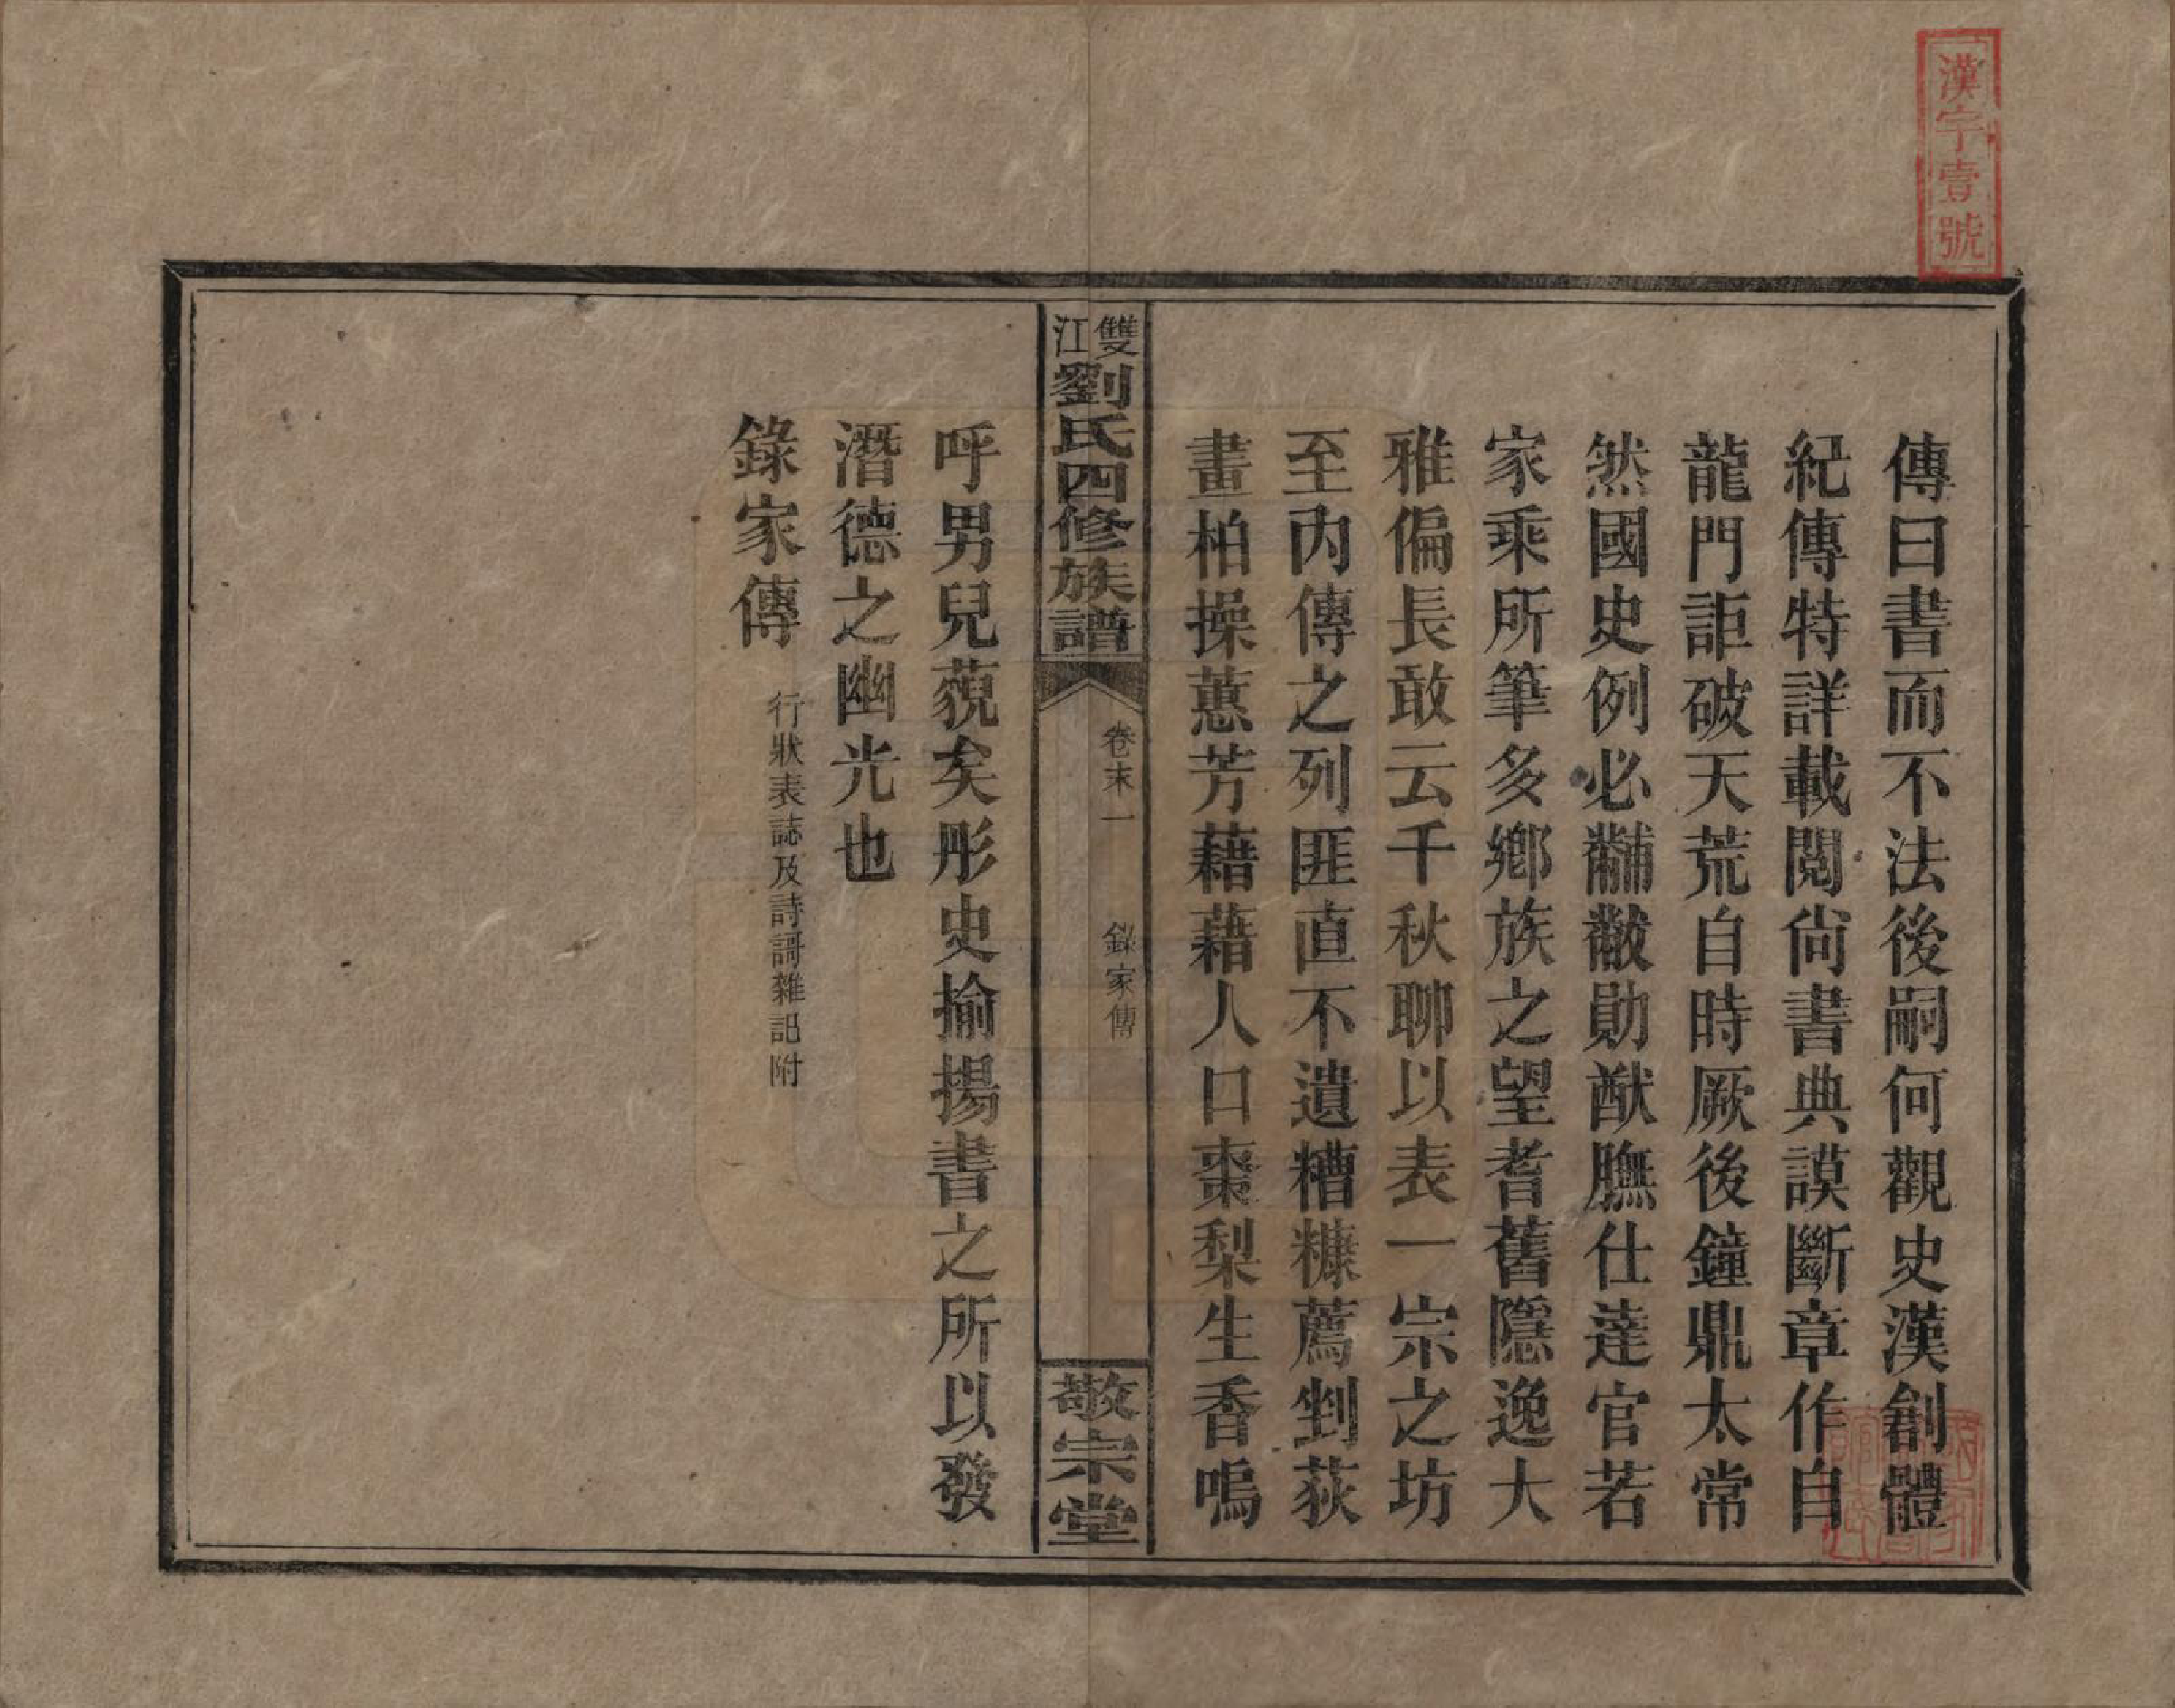 漢字壹號
傳曰書而不法後嗣何觀史漢創體
紀傳特詳載閱尙書典謨斷章作自
龍門詎破天荒自時厥後鐘鼎太常
然國史例必黼黻勛猷膴仕達官若
家乘所筆多鄉族之望耆舊隱逸大
雅偏長敢云千秋聊以表一宗之坊
至內傳之列匪直不遺糟糠薦剉荻
畫柏操蕙芳藉藉人口棗梨生香嗚
雙江劉氏四修族譜
卷末一 錄家傳
敬宗堂
呼男兒藐矣彤史揄揚書之所以發
潛德之幽光也
錄家傳 行狀表誌及詩謌雜記附